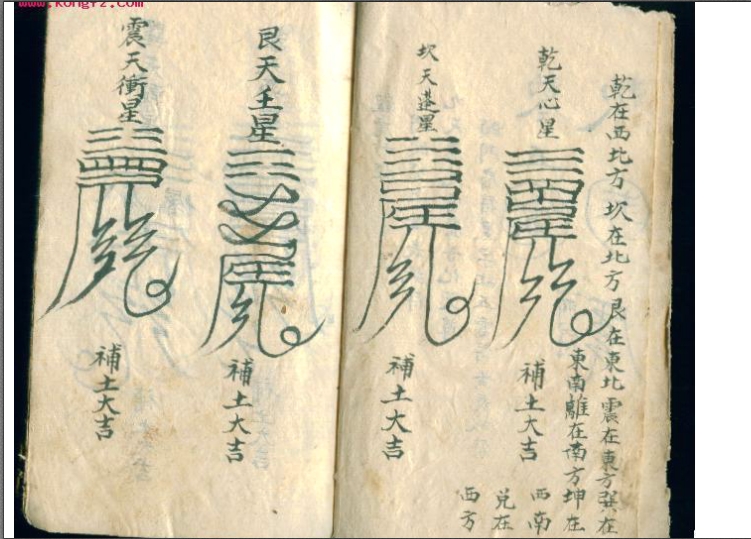 www.kongfz.com
乾在西北方 坎在北方艮在東北 震在東方巽在
東南離在南方坤在
西南
兌在
西方
乾天心星
補土大吉
坎天蓬星
補土大吉
艮天壬星
補土大吉
震天衝星
補土大吉